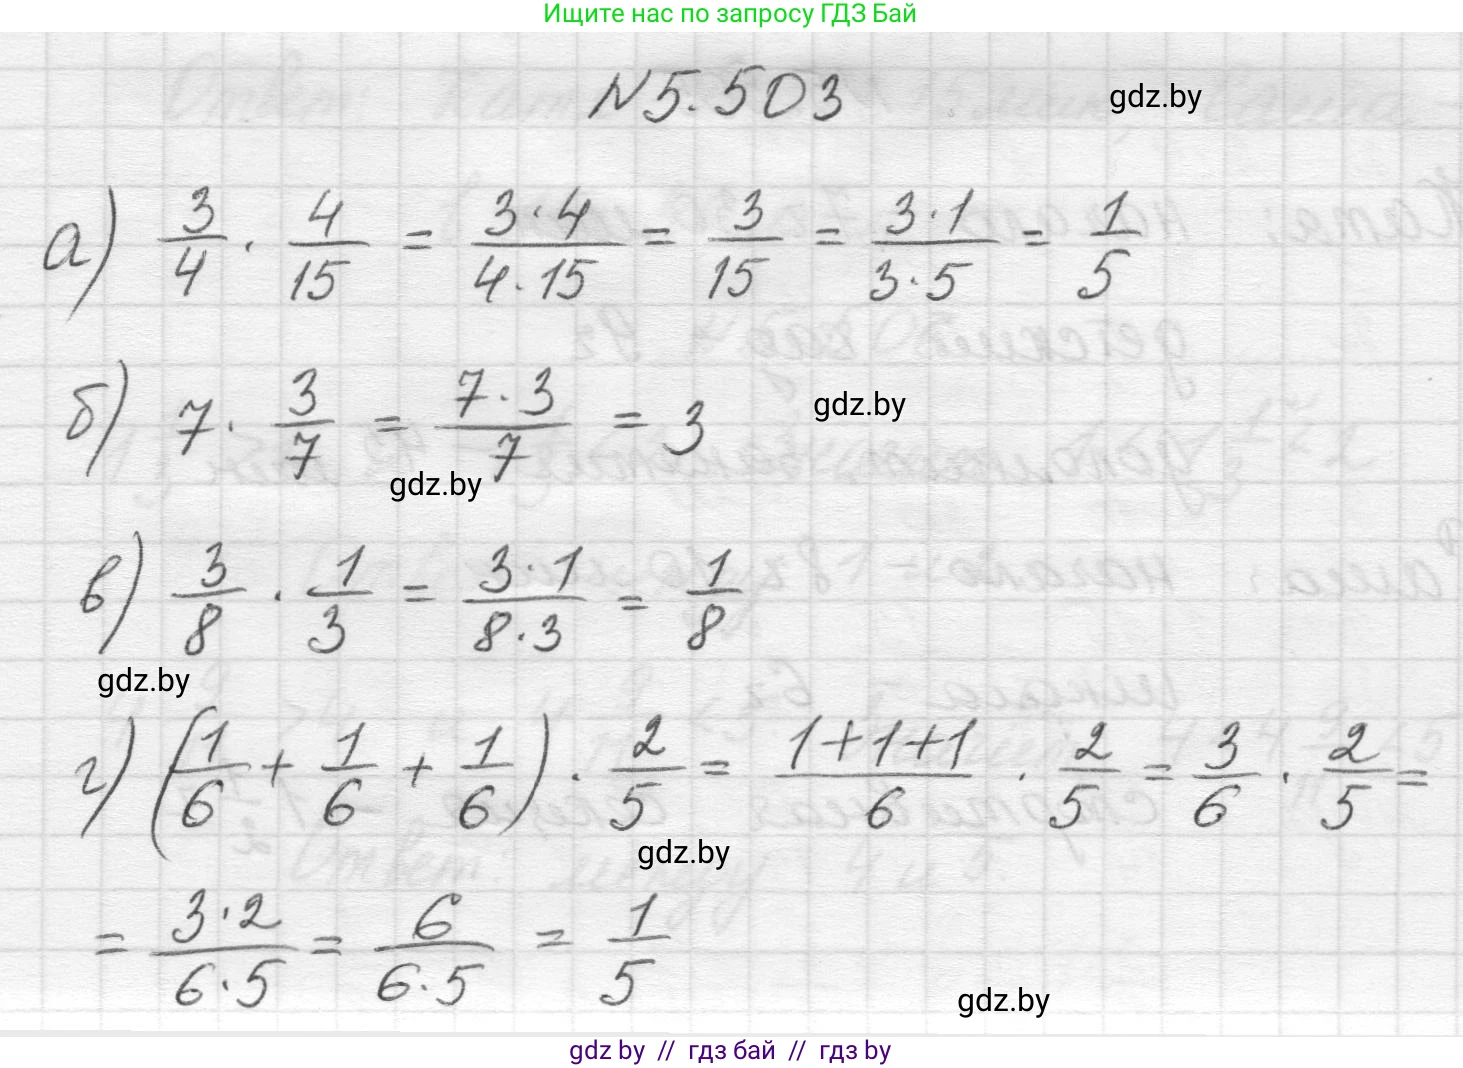 Ищите нас по запросу ГДЗ Бай
N5.503
gdz.by
а) 3/4 · 4/15 = 3·4/4·15 = 3/15 = 3·1/3·5 = 1/5
б) 7 · 3/7 = 7·3/7 = 3
gdz.by
gdz.by
в) 3/8 · 1/3 = 3·1/8·3 = 1/8
gdz.by
г) (1/6 + 1/6 + 1/6) · 2/5 = 1+1+1/6 · 2/5 = 3/6 · 2/5 =
gdz.by
= 3·2/6·5 = 6/6·5 = 1/5
gdz.by
gdz by // гдз бай // гдз by